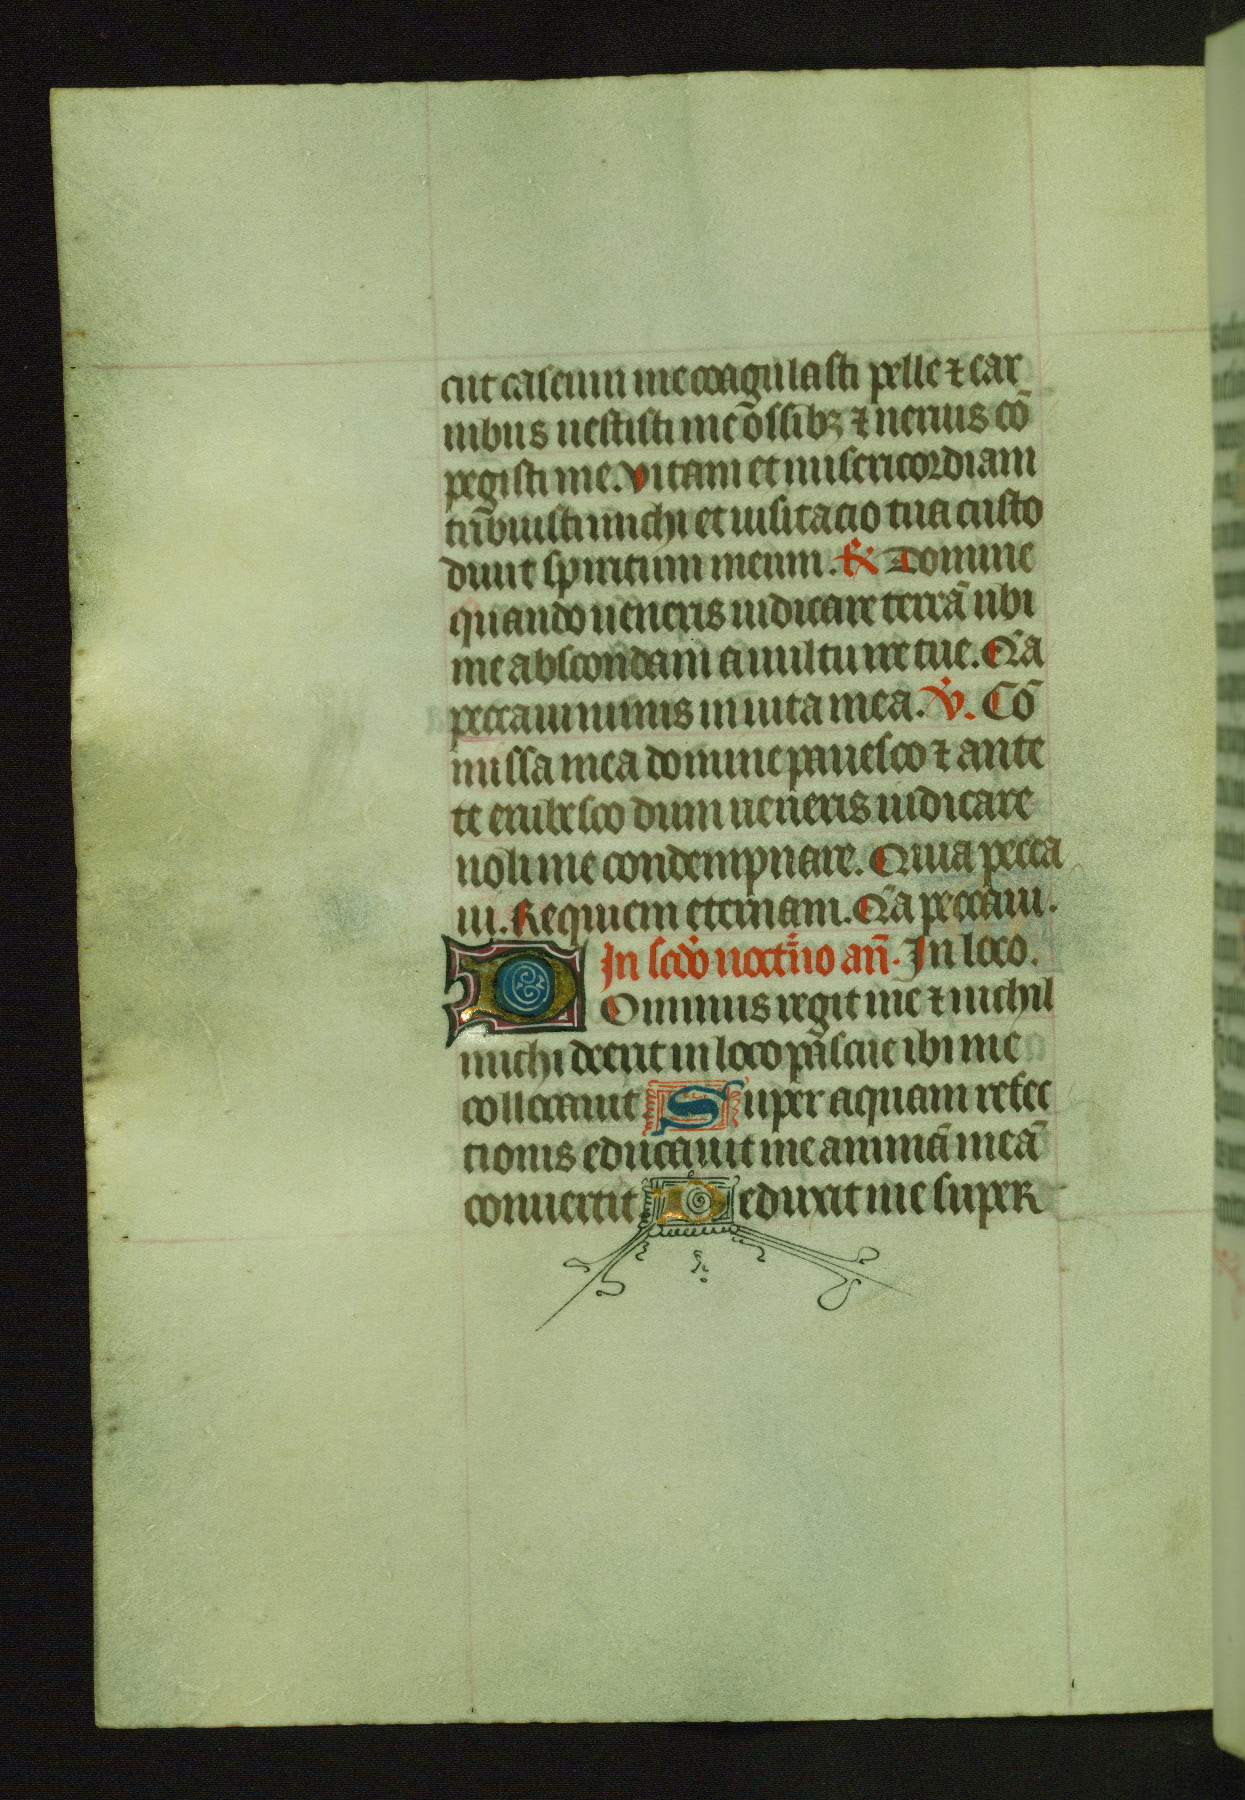 cut caseum me coagulasti pelle ⁊ car
nibus uestisti me ossibꝫ ⁊ neruis cō
pegisti me. Vitam et misericordiam
tribuisti michi et uisitacio tua custo
diuit spiritum meum. ℟ Domine
quando ueneris iudicare terrā ubi
me abscondam a uultu ire tue. Qa
peccaui nimis in uita mea. ℣. Cō
missa mea domine pauesco ⁊ ante
te erubesco dum ueneris iudicare
noli me condempnare. Quia pecca
ui. Requiem eternam. Qa peccaui.
In scdo nocturno añ. In loco.
Dominus regit me ⁊ nichil
michi deerit in loco pascue ibi me
collocauit Super aquam refec
tionis educauit me animā meā
conuertit Deduxit me super